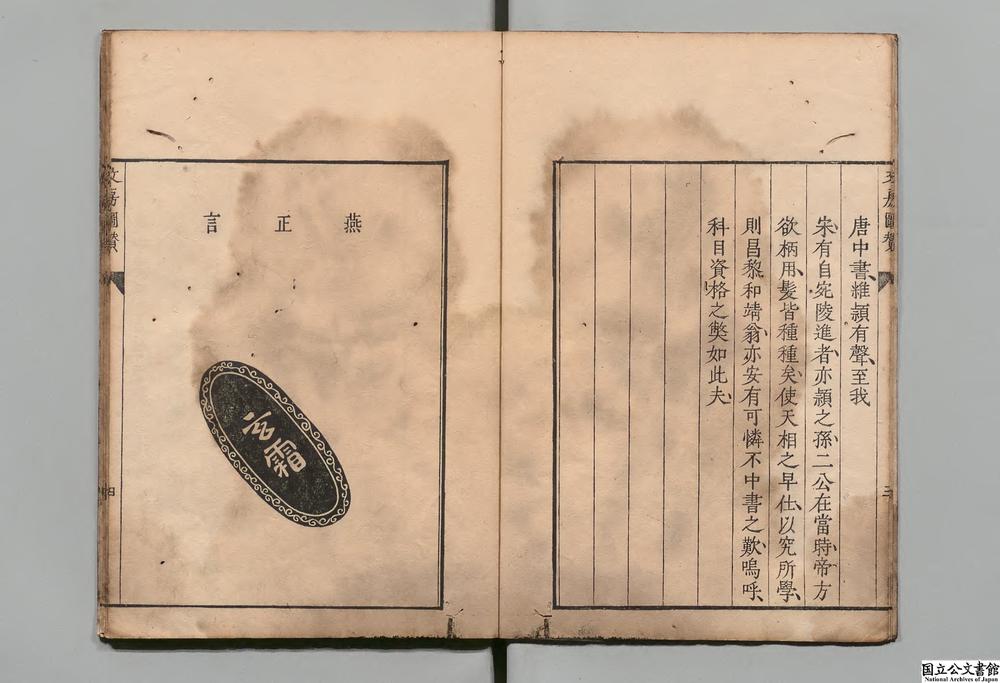 唐中書、雖頴有聲、至我
宋、有自宛陵進者、亦頴之孫、二公在當時、帝方
欲柄用、髮皆種種矣、使天相之早仕、以究所學、
則昌黎和靖翁、亦安有可憐不中書之歎、嗚呼、
科目資格之獘如此夫、
文房圖贊
燕正言
玄霜
文房圖贊
四
国立公文書館
National Archives of Japan